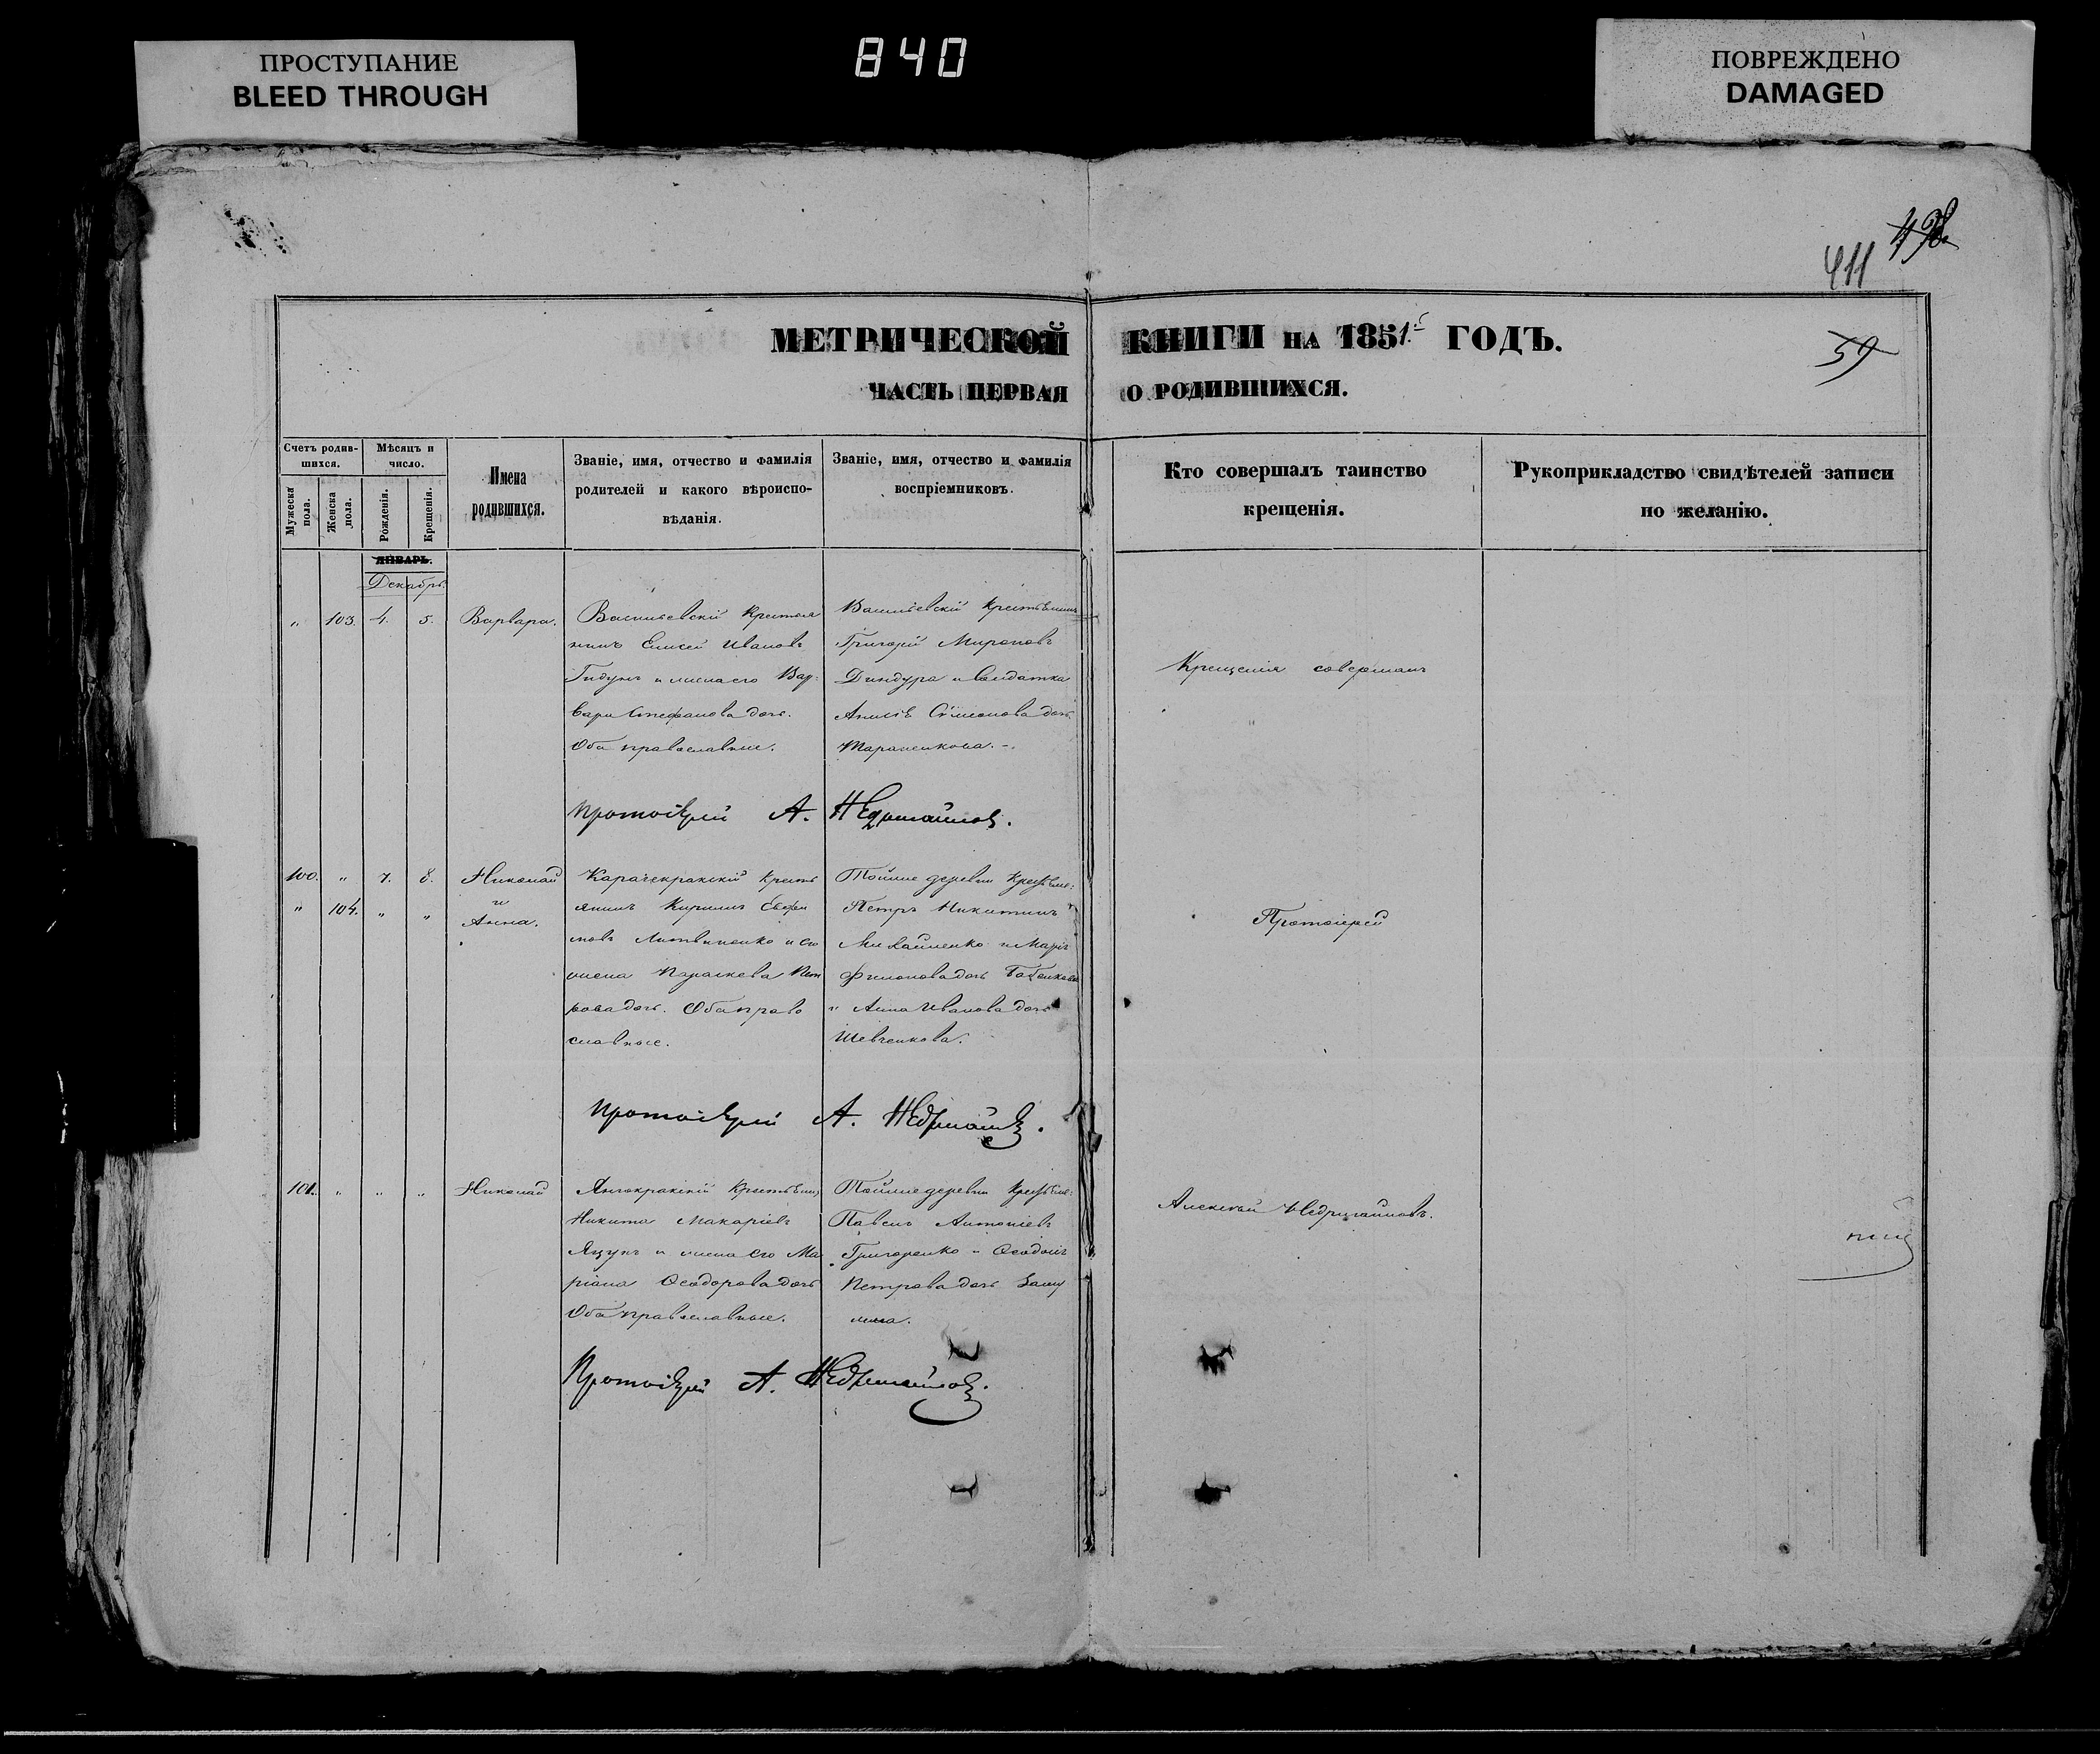 ПРОСТУПАНИЕ
BLEED THROUGH
840
ПОВРЕЖДЕНО
DAMAGED
411
МЕТРИЧЕСКОЙ КНИГИ НА 1851й ГОДЪ.
59
ЧАСТЬ ПЕРВАЯ О РОДИВШИХСЯ.
Счетъ родив-
шихся.
Мужеска пола.
Женска пола.
Мѣсяцъ и
число.
Рожденія.
Крещенія.
Имена
родившихся.
Званіе, имя, отчество и фамилія
родителей и какого вѣроиспо-
вѣданія.
Званіе, имя, отчество и фамилія
воспріемниковъ.
Кто совершалъ таинство
крещенія.
Рукоприкладство свидѣтелей записи
по желанію.
ЯНВАРЬ.
Декабрь.
" 103. 4. 5. Варвара.
Васильевскій Крестья
нинъ Елисей Ивановъ
Гидунъ и жена его Вар-
вара Стефанова дочь.
Оба православные.
Васильевскій Крестьянинъ
Григорій Мироновъ
Диндура и Солдатка
Симеонова дочь
Тараненкова.-
Протоіерей А. Недригайловъ.
100. " 7. 8. Николай
" 104. " " и
Анна.
Карачекракскій Кресть
янинъ Кириллъ Евфи
мовъ Литвиненко и его
жена Параскева Пет
рова дочь. Оба право
славные.
Тойже деревни
Петръ Никитинъ
Михайленко и Марія
Филипова дочь Бабенкова
и Анна Иванова дочь
Шевченкова.
Протоіерей А. Недригайловъ.
101. " " " Николай
Янчокракскій Крестьянинъ
Никита Макаріевъ
Яцунъ и жена его Ма
ріана Ѳеодорова дочь
Оба православные.
Тойже деревни
Павелъ Антоніевъ
Григоренко и Ѳеодосія
Петрова дочь
Протоіерей А. Недригайловъ.
Крещенія совершалъ
Протоіерей
Алексѣй Недригайловъ.